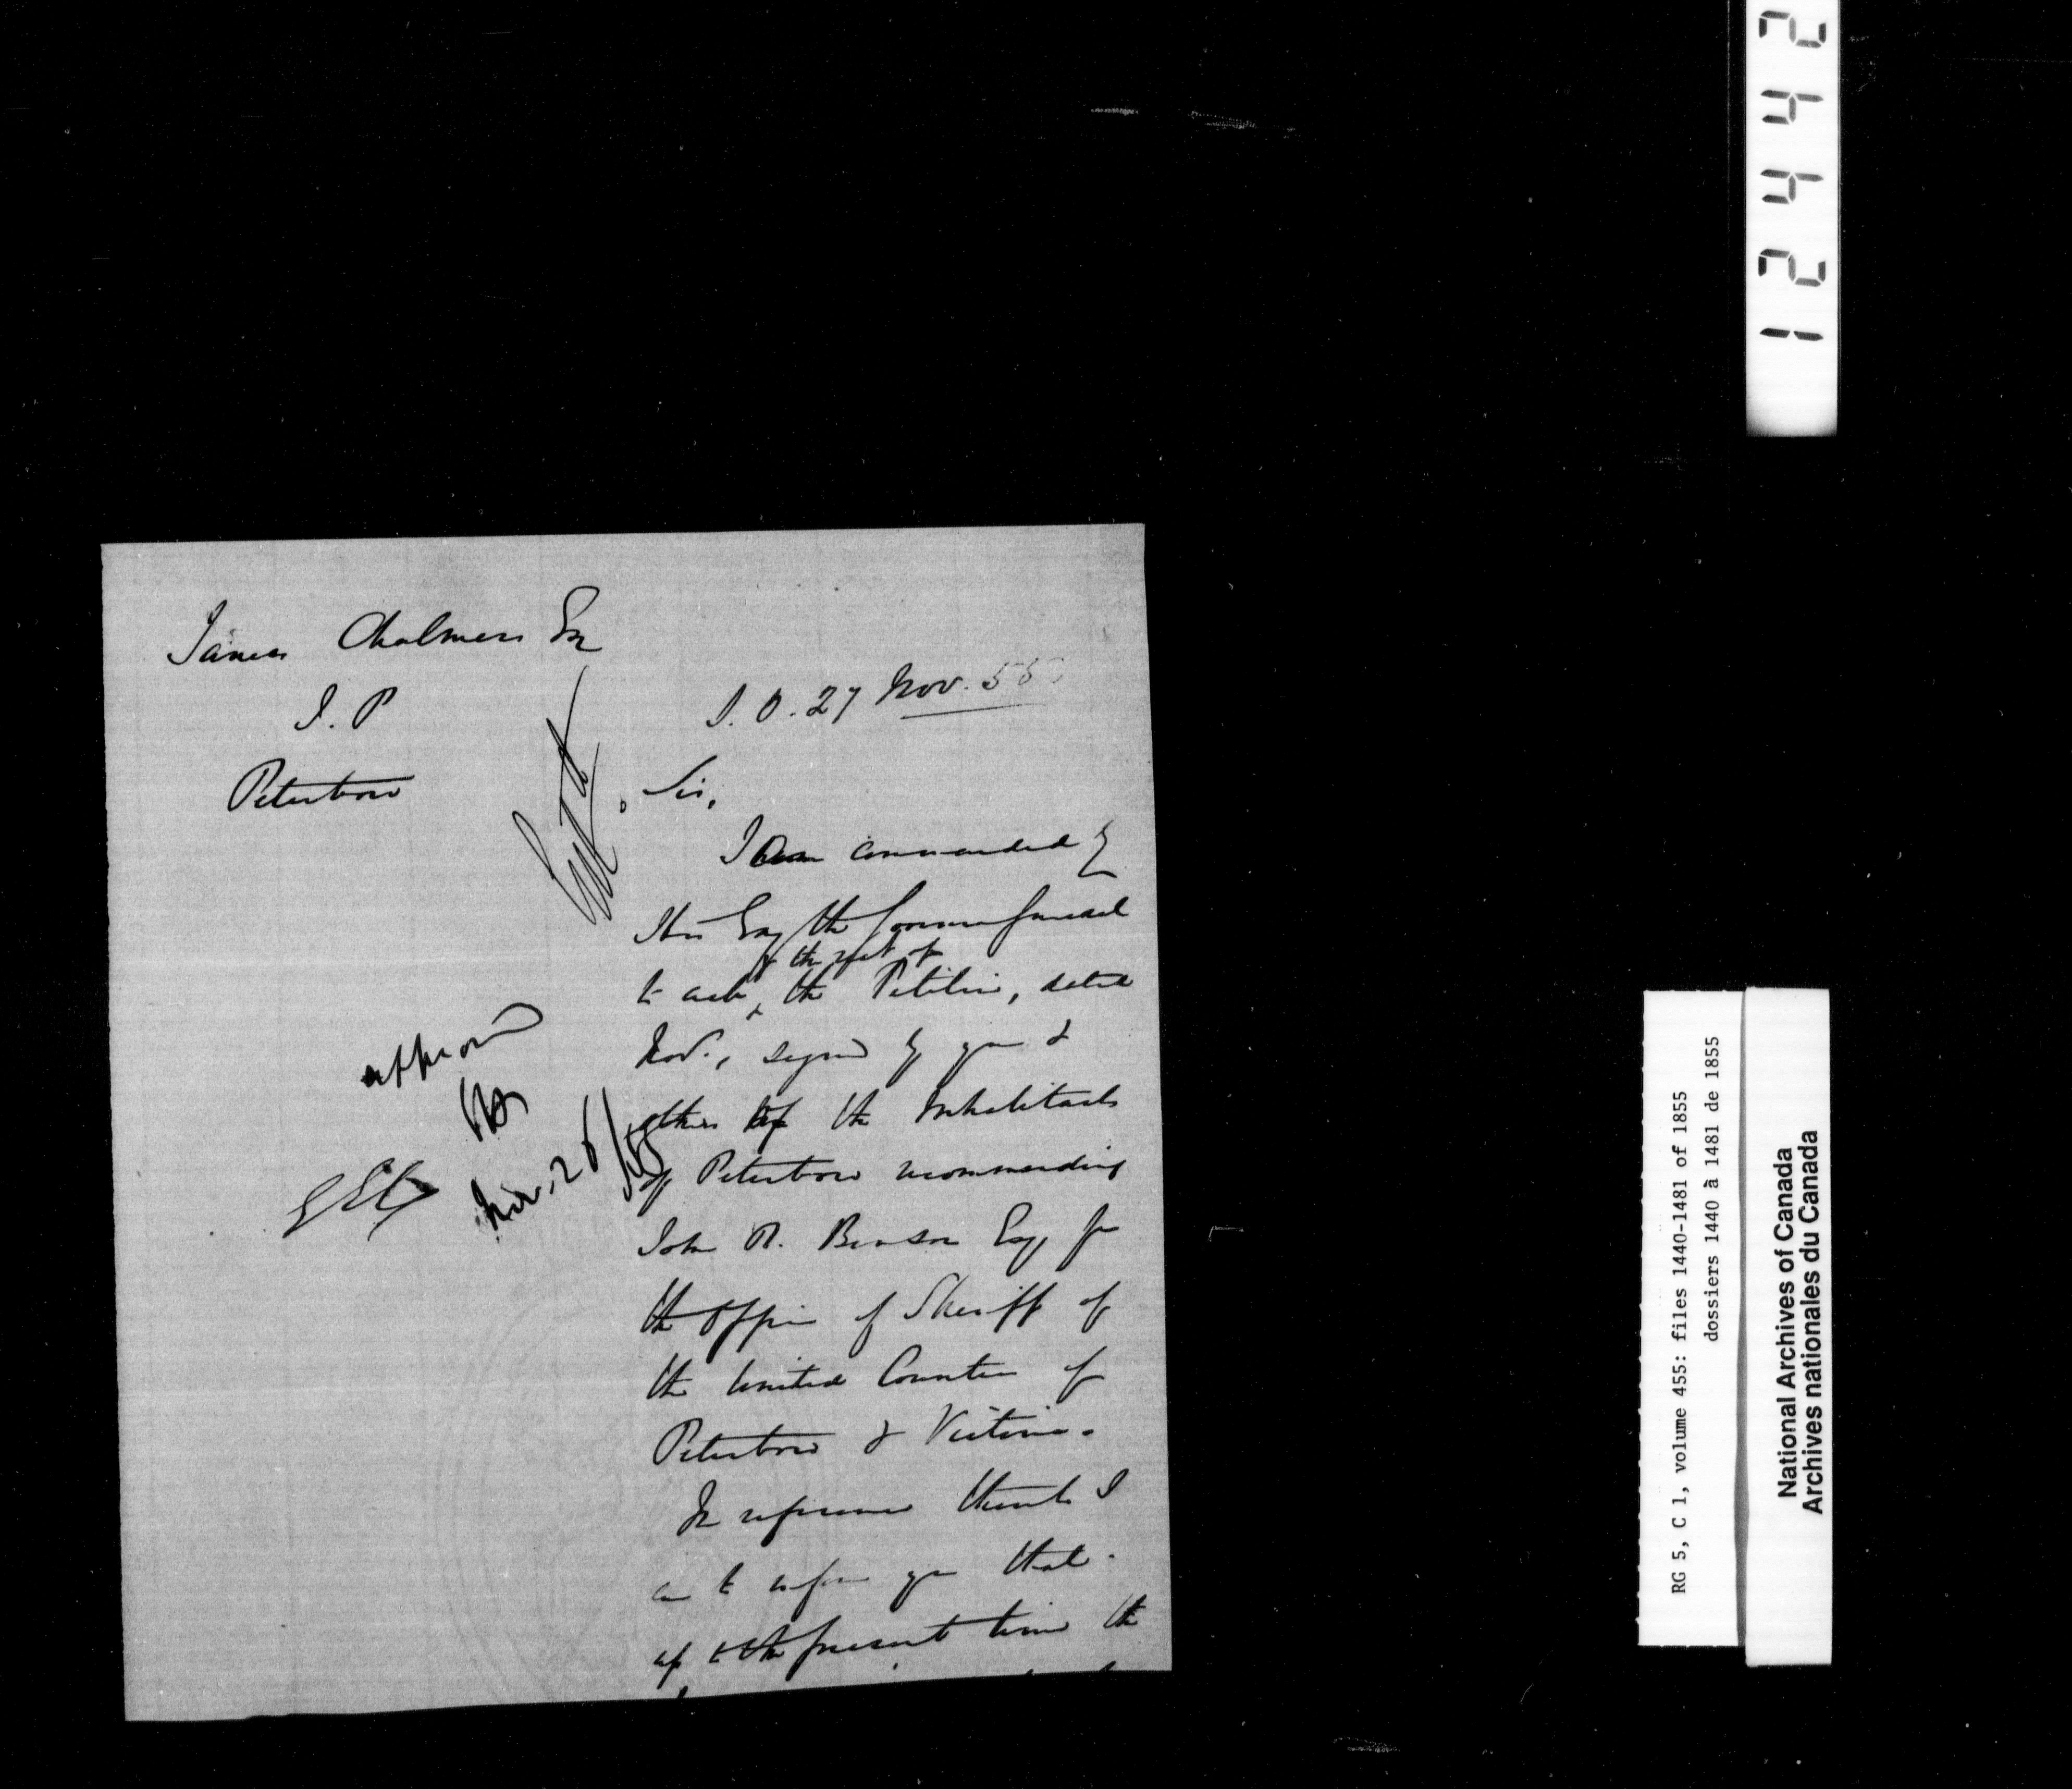 James Chalmers Esq
J. P
Peterboro
S. O. 27 Nov. 55
Sir,
I am commanded by
His Exy the Governor General
& the rect of
to ack the Petition, dated
Nov., signed by you &
others of the Inhabitants
of Peterboro recommending
John R. Benson Esq for
the Office of Sheriff of
the United Counties of
Peterboro & Victoria.
In reference thereto I
am to inform you that
up to the present time the
approved
Nov. 26/55
12442
RG 5, C 1, volume 455: files 1440-1481 of 1855
dossiers 1440 à 1481 de 1855
National Archives of Canada
Archives nationales du Canada